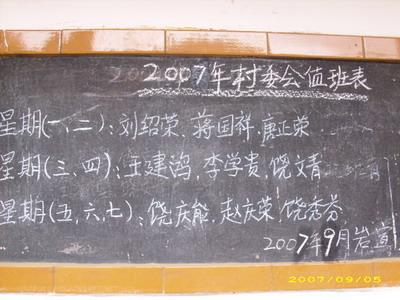 2007年村委会值班表
星期(一、二)：刘绍荣、蒋国祥、唐正荣
星期(三、四)：王建鸿、李学贵、饶文青
星期(五,六,七)：饶庆能、赵庆荣、饶秀芬
2007年9月岩宣
2007/09/05